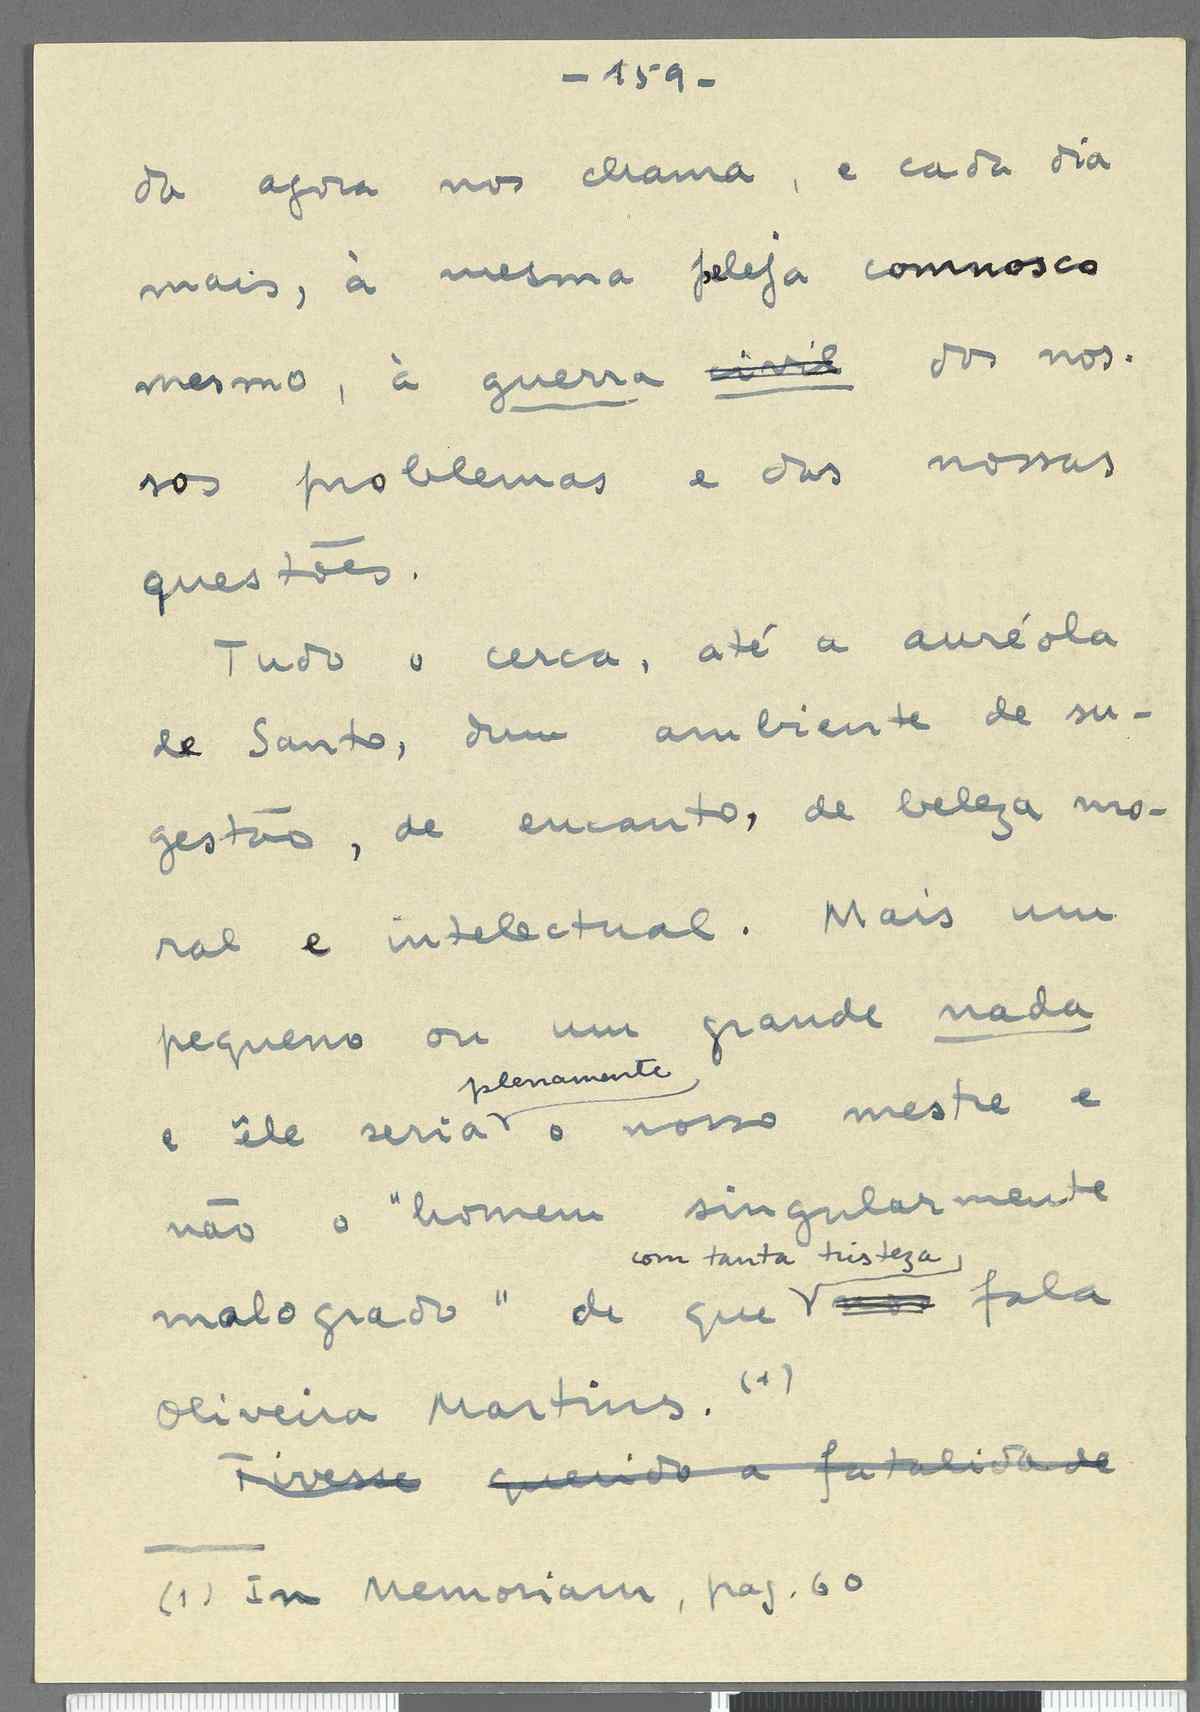 - 159 -
da agora nos chama, e cada dia
mais, à mesma peleja comnosco
mesmo, à guerra civil dos nos-
sos problemas e das nossas
questões.
Tudo o cerca, até a auréola
de Santo, dum ambiente de su-
gestão, de encanto, de beleza mo-
ral e intelectual. Mais um
pequeno ou um grande nada
plenamente
e êle seria o nosso mestre e
não o "homem singularmente
com tanta tristeza
malogrado" de que fala
Oliveira Martins. (1)
Tivesse querido a fatalidade
(1) In Memoriam, pag. 60